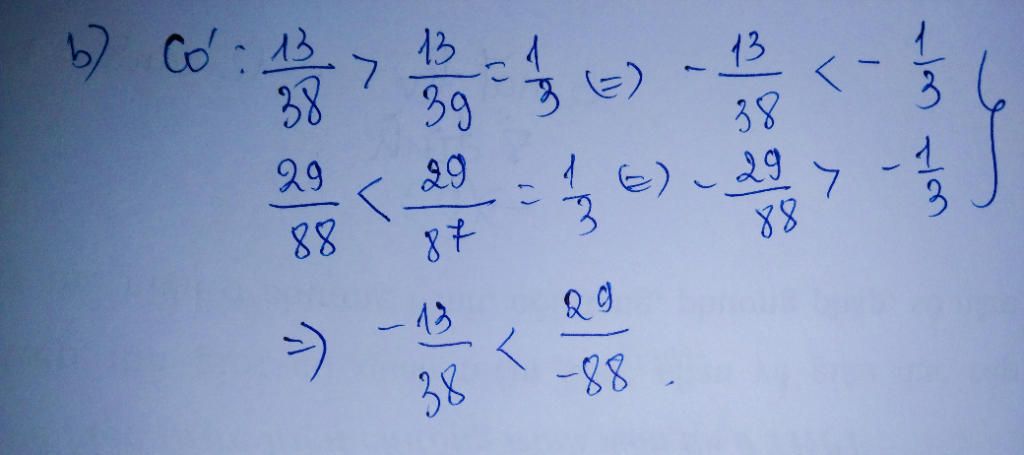 b) Có: 13/38 > 13/39 = 1/3 (=) - 13/38 < - 1/3 }
29/88 < 29/87 = 1/3 (=) - 29/88 > - 1/3
=) -13/38 < 29/-88.